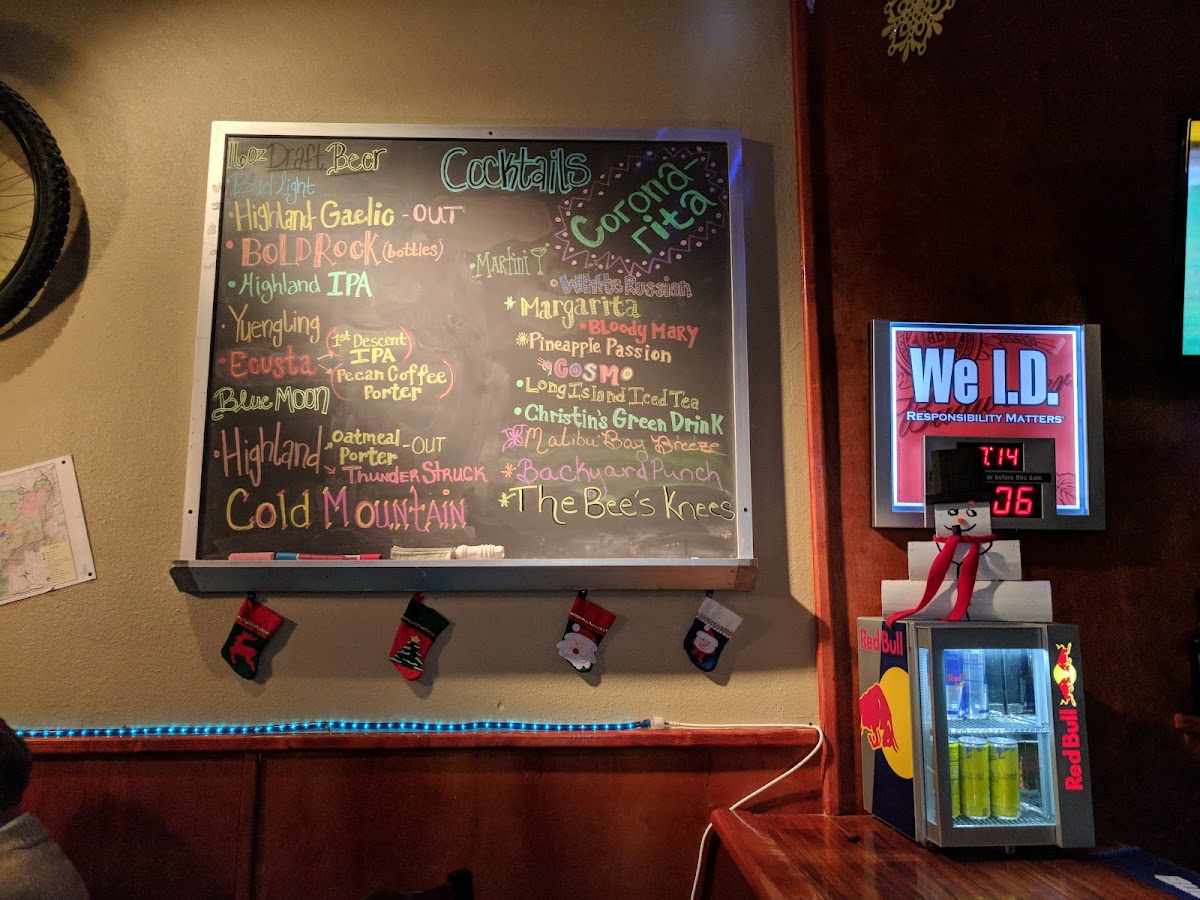 16oz Draft Beer
Bud Light
• Highland Gaelic - OUT
• BOLD ROCK (bottles)
• Highland IPA
• Yuengling
• Ecusta
1st Descent
IPA
Pecan Coffee
Porter
Blue Moon
• Highland
Oatmeal - OUT
Porter
Thunder Struck
Cold Mountain
Cocktails
Corona-
rita
• Martini
• White Russian
* Margarita
• Bloody Mary
* Pineapple Passion
* COSMO
• Long Island Iced Tea
• Christin's Green Drink
* Malibu Bay Breeze
* Backyard Punch
* The Bee's Knees
We I.D.
RESPONSIBILITY MATTERS
7.14
or before this date.
06
Red Bull
Red Bull
Red